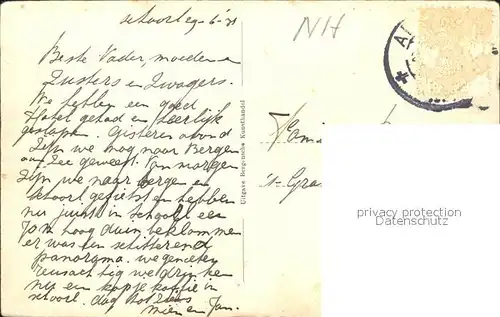 schoorl 9-6-'31
NH
Beste Vader moeder en
Zusters en Zwagers.
We hebben een goed
Hotel gehad en heerlijk
geslapen. Gisteren avond
zijn we nog naar Bergen
aan Zee geweest. Van morgen
zijn we naar bergen en
schoorl gefietst en hebben
nu juist in Schoorl een
hoog duin beklommen
er was een schitterend
panorama. we genieten
reusachtig we drinken
nu een kopje koffie in
schoorl. dag tot ziens
Mien en Jan.
Uitgave Bergensche Kunsthandel
privacy protection
Datenschutz